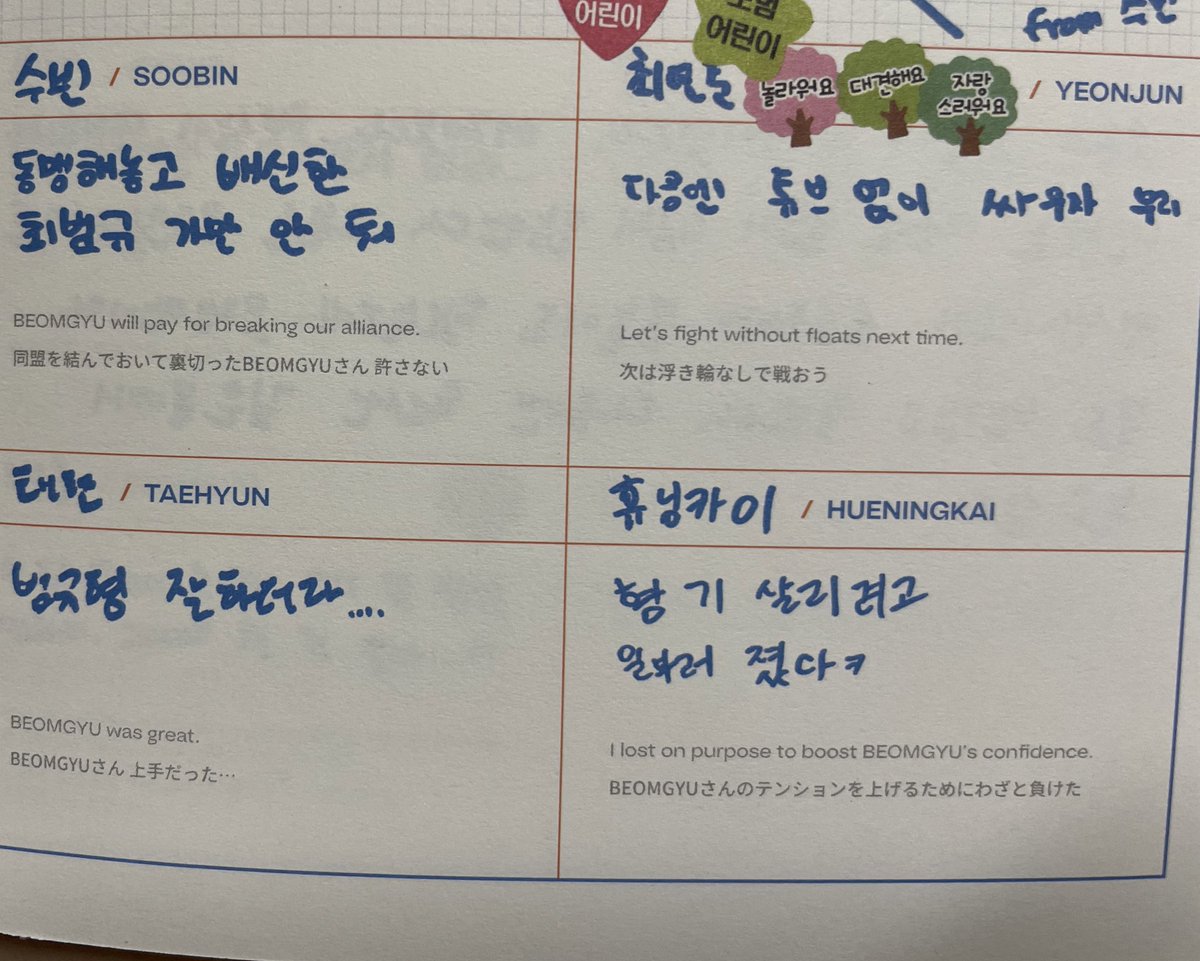 어린이
모범
어린이
from 수빈
수빈 / SOOBIN
최연준 / YEONJUN
놀라워요
대견해요
자랑
스러워요
동맹해놓고 배신한
최범규 가만 안 둬
BEOMGYU will pay for breaking our alliance.
同盟を結んでおいて裏切ったBEOMGYUさん 許さない
다음엔 튜브 없이 싸우자 우리
Let's fight without floats next time.
次は浮き輪なしで戦おう
태현 / TAEHYUN
휴닝카이 / HUENINGKAI
범규형 잘하더라....
BEOMGYU was great.
BEOMGYUさん 上手だった…
형 기 살리려고
일부러 졌다ㅋ
I lost on purpose to boost BEOMGYU's confidence.
BEOMGYUさんのテンションを上げるためにわざと負けた